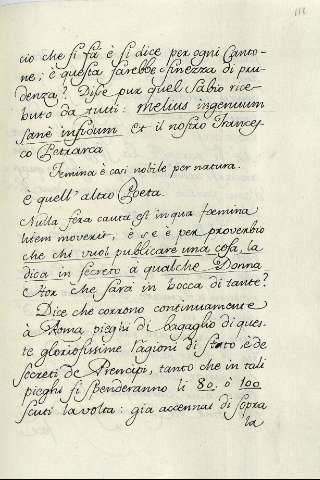 cio che si fà è si dice per ogni Canto-
ne; è questa sarebbe finezza di pru-
denza? Disse pur quel Sabio rice-
buto da tutti: melius ingenuum
sanè infidum et il nostro Frances-
co Petrarca
Femina è casi nobile per natura.
è quell' altro Poeta.
Nulla fera cauta est in qua fœmina
litem moverit, è s e è per proverbio
che chi vuol publicare una cosa, la
dica in secreto à qualche Donna
Hor che sarà in bocca di tante?
Dice che corrono continuamente
à Roma pieghi di bagaglio di ques-
te gloriosissime ragioni di stato, è de
secreti de Prencipi, tanto che in tali
pieghi si spenderanno li 80. ò 100
scuti la volta: già accennai di sopra
la